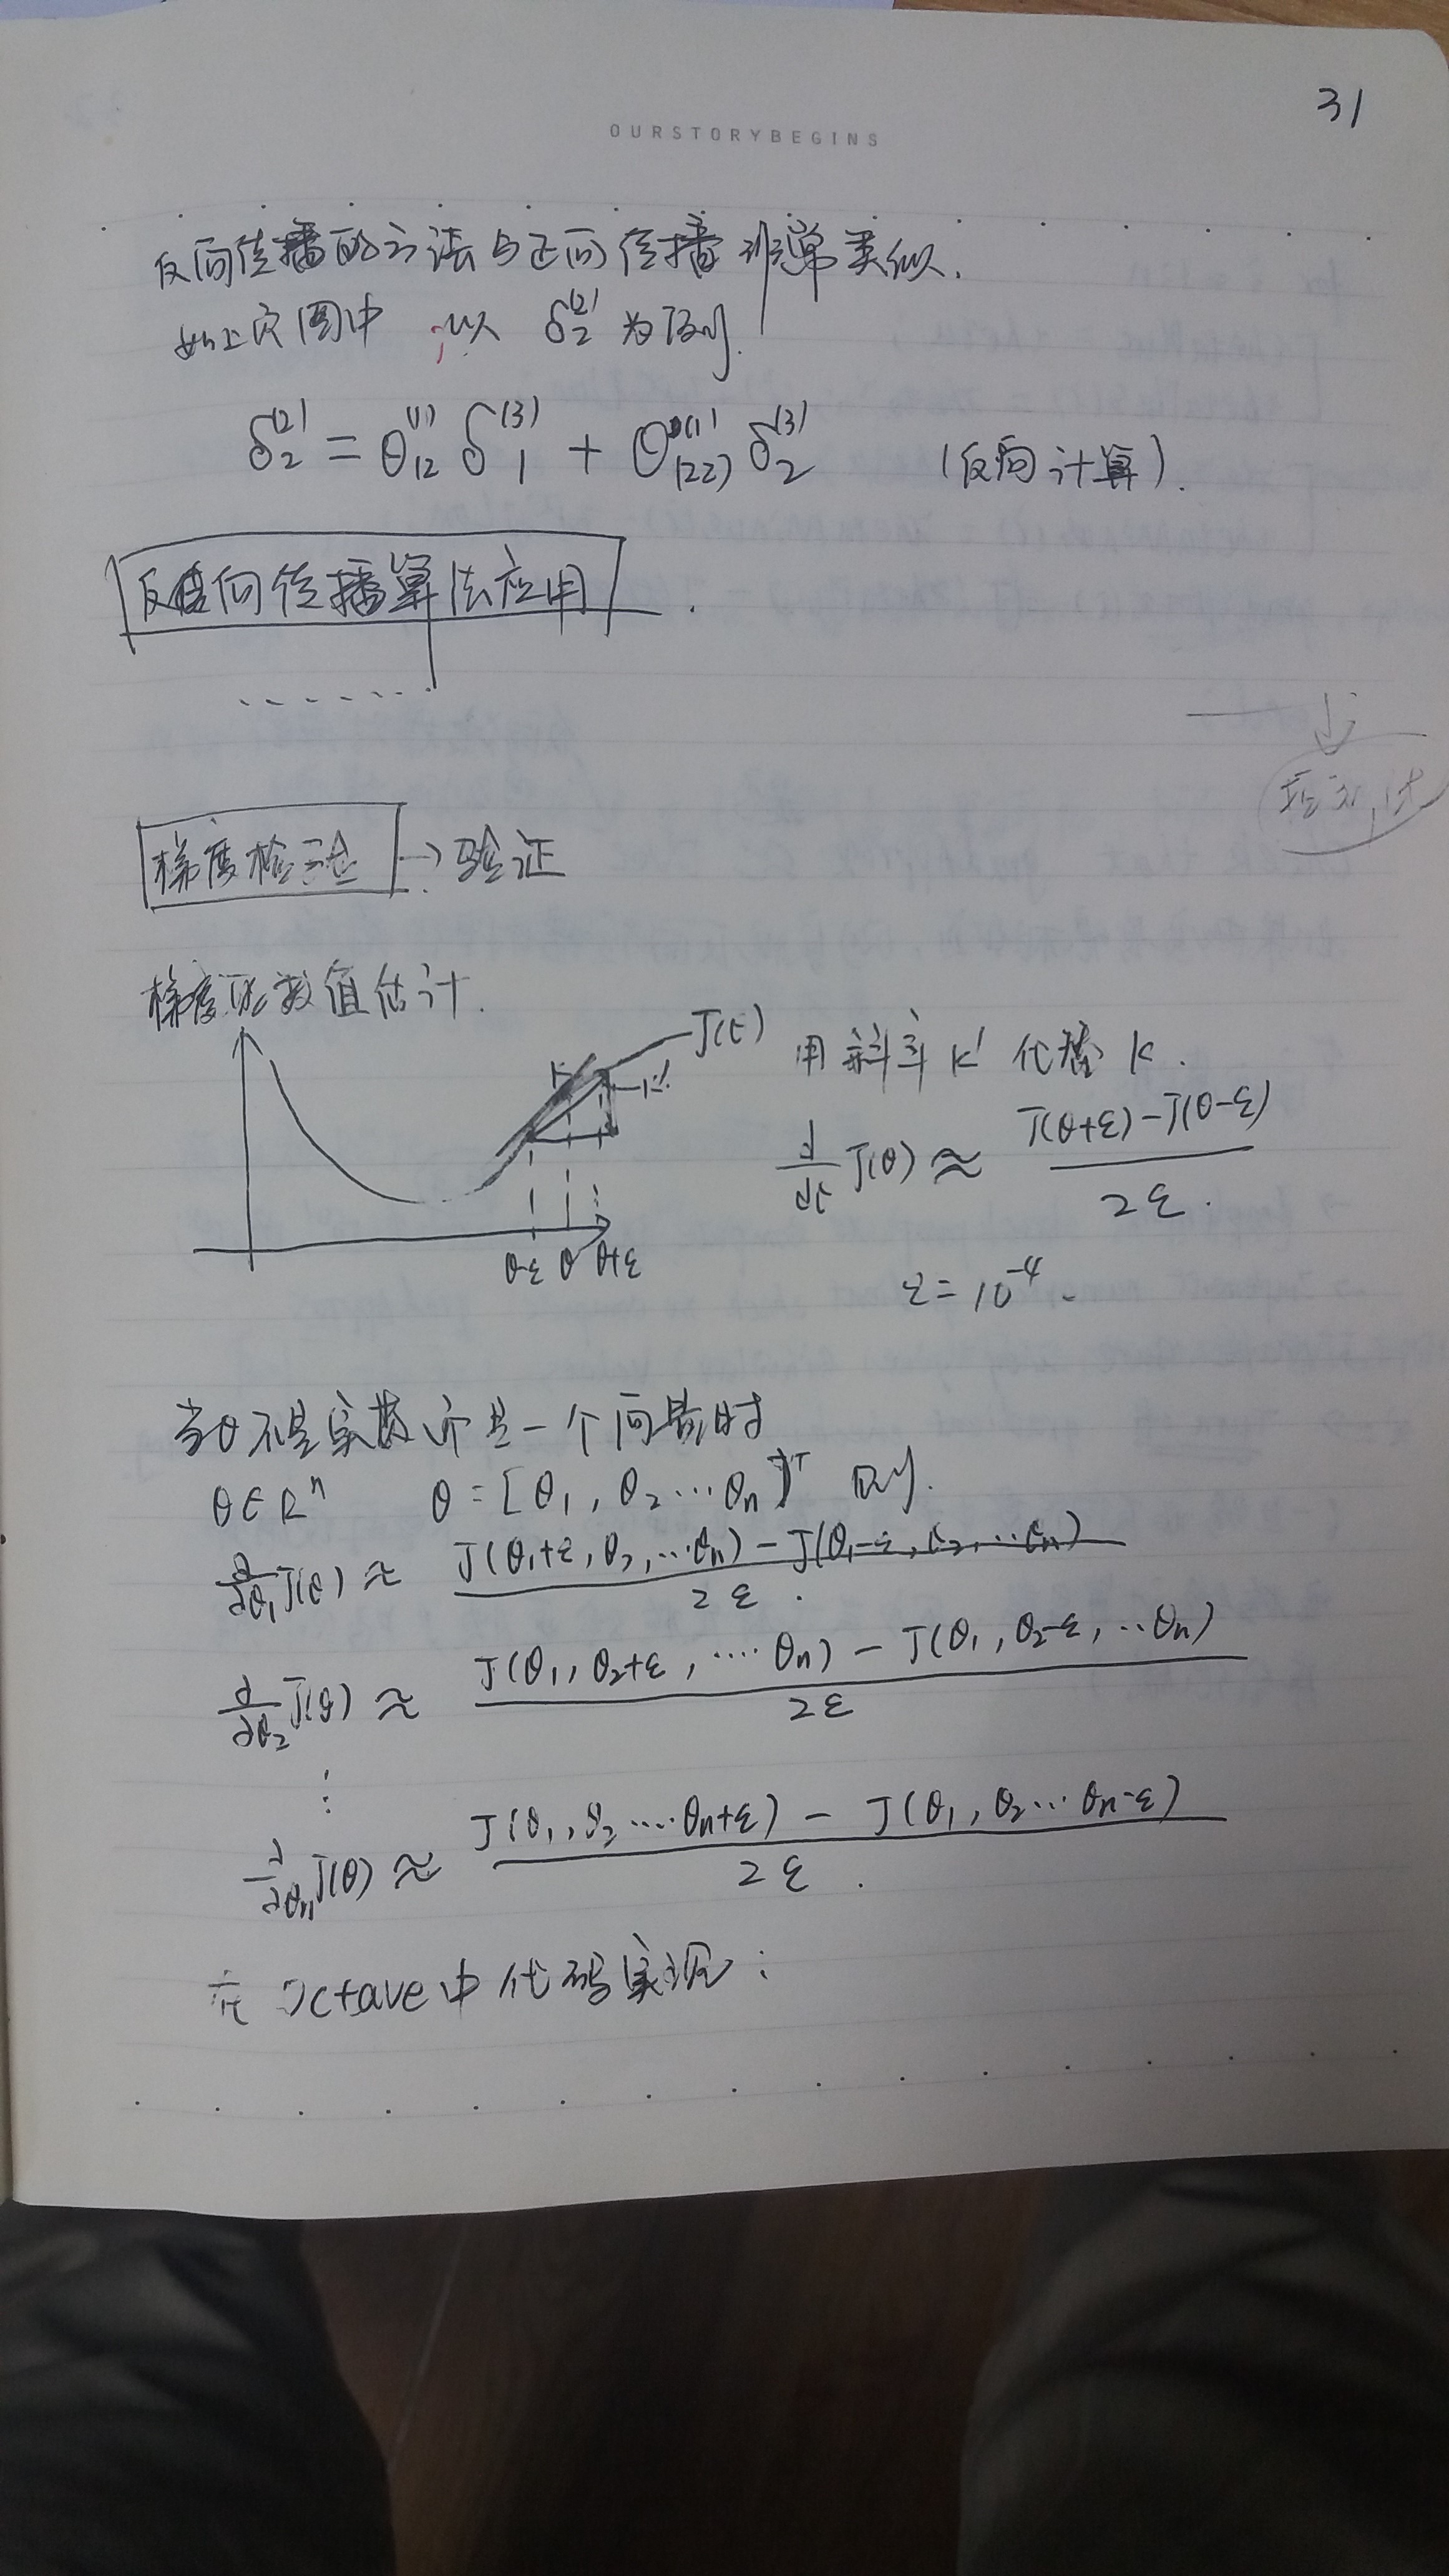 31
OURSTORYBEGINS
反向传播的方法与正向传播非常类似.
如上页图中,以 δ₂⁽²⁾ 为例.
δ₂⁽²⁾ = θ₁₂⁽¹⁾ δ₁⁽³⁾ + θ₍₂₂₎⁽¹⁾ δ₂⁽³⁾ (反向计算).
反向传播算法应用.
.......
梯度检验 → 验证
梯度的数值估计.
J(t) 用斜率 K' 代替 K.
K K'
d/dt J(θ) ≈ J(θ+ε)-J(θ-ε) / 2ε.
θ-ε θ θ+ε
ε = 10⁻⁴.
当θ不是实数而是一个向量时
θ∈Rⁿ θ = [θ₁, θ₂ ⋯ θn]ᵀ 则.
∂/∂θ₁ J(θ) ≈ J(θ₁+ε, θ₂, ⋯θn) - J(θ₁-ε, θ₂, ⋯θn) / 2ε.
∂/∂θ₂ J(θ) ≈ J(θ₁, θ₂+ε, ⋯⋯ θn) - J(θ₁, θ₂-ε, ⋯θn) / 2ε
⋮
∂/∂θn J(θ) ≈ J(θ₁, θ₂ ⋯⋯ θn+ε) - J(θ₁, θ₂⋯ θn-ε) / 2ε.
在 Octave中代码实现: